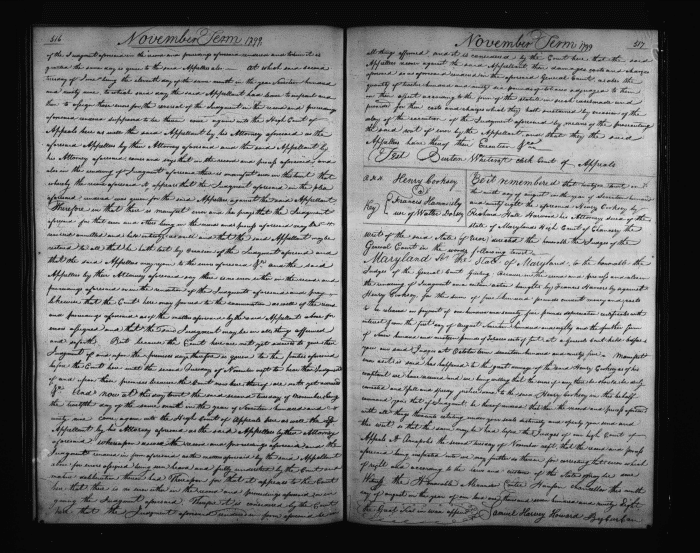 516
November Term 1799
of the Judgment aforesaid in the record and proceedings aforesaid rendered and
given the same day is given to the said Appellee &c — at which said second
Tuesday of June being the eleventh day of the same month in the year Seventeen hundred
and ninety nine to which said day the said Appellant has to
have to assign their errors for the reversal of the Judgment in the record and proceedings
aforesaid come again into the High Court of
Appeals here as well the said Appellant by his Attorney aforesaid as the
aforesaid Appellees by their Attorney aforesaid and the said Appellant by
his Attorney aforesaid comes and says that in the record and proceedings aforesaid, and
also in the rendering of Judgment aforesaid there is manifest error in this to wit that
whereby the record aforesaid it appears that the Judgment aforesaid in the plea
aforesaid was given for the said Appellees against the said Appellant
Therefore in that there is manifest error and he prays that the Judgment
aforesaid for that error and others being in the record and proceedings aforesaid may be
reversed annulled and held entirely as void and that the said Appellant may be
restored to all that he hath lost by occasion of the Judgment aforesaid and
that the said Appellees may rejoin to the errors aforesaid &c and the said
Appellees by their Attorney aforesaid say there is no error either in the record and
proceedings aforesaid or in the rendition of the Judgment aforesaid and pray
likewise that the Court here may proceed to the examination as well of the record
and proceedings aforesaid as of the matters aforesaid by the said Appellant above for
error assigned and that the said Judgment may be in all things affirmed
and &c. But because the Court here are not yet advised to give their
Judgment of and upon the premises day therefore is given to the parties aforesaid
before the Court here until the second Tuesday of November next to hear their Judgment
of and upon those premises because the Court now here thereof are not yet advised
&c And now at this day to wit the said second Tuesday of November being
the twelfth day of the same month in the year of Seventeen hundred and
ninety nine come again into the High Court of Appeals here as well the said
Appellant by his Attorney aforesaid as the said Appellees by their Attorney
aforesaid whereupon as well the record and proceedings aforesaid and the
Judgment rendered in form aforesaid as the matters aforesaid by the said Appellant
above for error assigned being seen heard and fully understood by the Court and
mature deliberation thereon had Thereupon for that it appears to the Court
here that there is no error either in the record and proceedings aforesaid or in
giving the Judgment aforesaid Therefore it is considered by the Court
here that the Judgment aforesaid rendered in form aforesaid be in
November Term 1799
517
all things affirmed, and it is considered by the Court here that the said
Appellees recover against the said Appellant their damages costs and charges
aforesaid as aforesaid rendered in the aforesaid General Court, as also the
quantity of twelve hundred and ninety six pounds of tobacco adjudged to them
in their assent according to the form of the statute in such case made and
provided for their costs and charges which they have sustained by occasion of the
delay of the execution of the Judgment aforesaid by means of the prosecuting
the said writ of error by the Appellant and that they the said
Appellees have thereof their Execution &c.
Test Burton Whetcroft clerk Court of Appeals
Henry Cooksey
Key
Frances Hamersley
use of Walter Dorsey
Be it remembered that heretofore to wit on the
sixth day of August in the year of Seventeen hundred
and ninety eight the aforesaid Henry Cooksey by
Richard Hall Harwood his Attorney sued out of the
State of Maryland's High Court of Chancery the
writ of the said State of error directed the honorable the Judges of the
General Court in the words following to wit
Maryland Sct The State of Maryland, to the honorable the
Judges of the General Court Greeting Because in the record and process and also in
the rendering of Judgment and certain action brought by Frances Hamersley against
Henry Cooksey, for the sum of four hundred pounds current money and costs
to be released on payment of one hundred and twenty four pounds seventeen shillings with
interest from the first day of August seventeen hundred and ninety and the further sum
of seven hundred and nineteen pounds of tobacco costs of suit at a general Court held before
you our said Judges at October term seventeen hundred and ninety five. Manifest
error as it is said has happened to the great injury of the said Henry Cooksey of his
complaint we have received and we being willing that the error if any there be should be duly
corrected and full and speedy justice done to the said Henry Cooksey in this behalf
command you that if Judgment be thereof rendered that then the record and process aforesaid
with all things thereunto relating under your seals distinctly and openly you send and
this writ so that the same may be had before the Judges of our high Court of
Appeals At Annapolis the second Tuesday of November next, that the record and process
aforesaid being inspected into we may further do therein for correcting that error which
of right and according to the laws and customs of this State ought to be done
Witness the Honorable Alexander Contee Hanson Chancellor this sixth
day of August in the year of our Lord one thousand seven hundred and ninety Eight
Samuel Harvey Howard